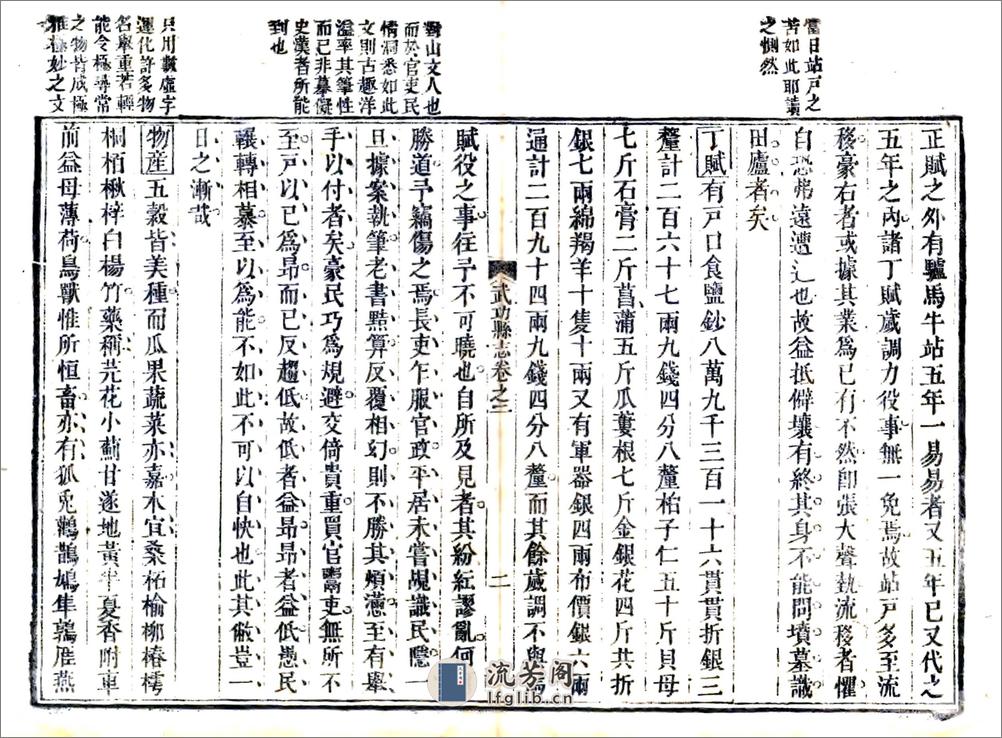 當日站戸之
苦如此耶讀
之惻然
正賦之外有驢馬牛站五年一易易者又五年已又代之
五年之內諸丁賦歲調力役事無一免焉故站戸多至流
移豪右者或據其業為已有不然卽張大聲埶流移者懼
自恐弗遠遭辶也故益抵僻壤有終其身不能問墳墓識
田廬者矣
丁賦有戸口食鹽鈔八萬九千三百一十六貫貫折銀三
釐計二百六十七兩九錢四分八釐栢子仁五十斤貝母
七斤石膏二斤菖蒲五斤瓜蔞根七斤金銀花四斤共折
銀七兩綿羯羊十隻十兩又有軍器銀四兩布價銀六兩
通計二百九十四兩九錢四分八釐而其餘歲調不與焉
武功縣志卷之二
二
對山文人也
而於官吏民
情洞悉如此
文則古趣洋
溢率其筆性
而已非摹擬
史漢者所能
到也
賦役之事往予不可曉也自所及見者其紛紜謬亂何
勝道予竊傷之焉長吏乍服官政平居未嘗覘識民隱一
旦據案執筆老書黠算反覆相幻則不勝其煩懣至有舉
手以付者矣豪民巧為規避交倚貴重買官鬻吏無所不
至戸以已為昻而已反趨低故低者益昻昻者益低愚民
輾轉相慕至以為能不如此不可以自快也此其敝豈一
日之漸哉
只用數虛字
運化許多物
名舉重若輕
能令極尋常
之物皆成極
雅極妙之文
物產五穀皆美種而瓜果蔬菜亦嘉木宜桑柘榆柳椿樗
桐栢楸梓白楊竹藥稱芫花小薊甘遂地黃半夏香附車
前益母薄荷鳥獸惟所恒畜亦有狐兎鸛鵲鳩隼鶉雁燕
流芳阁
lfglib.cn